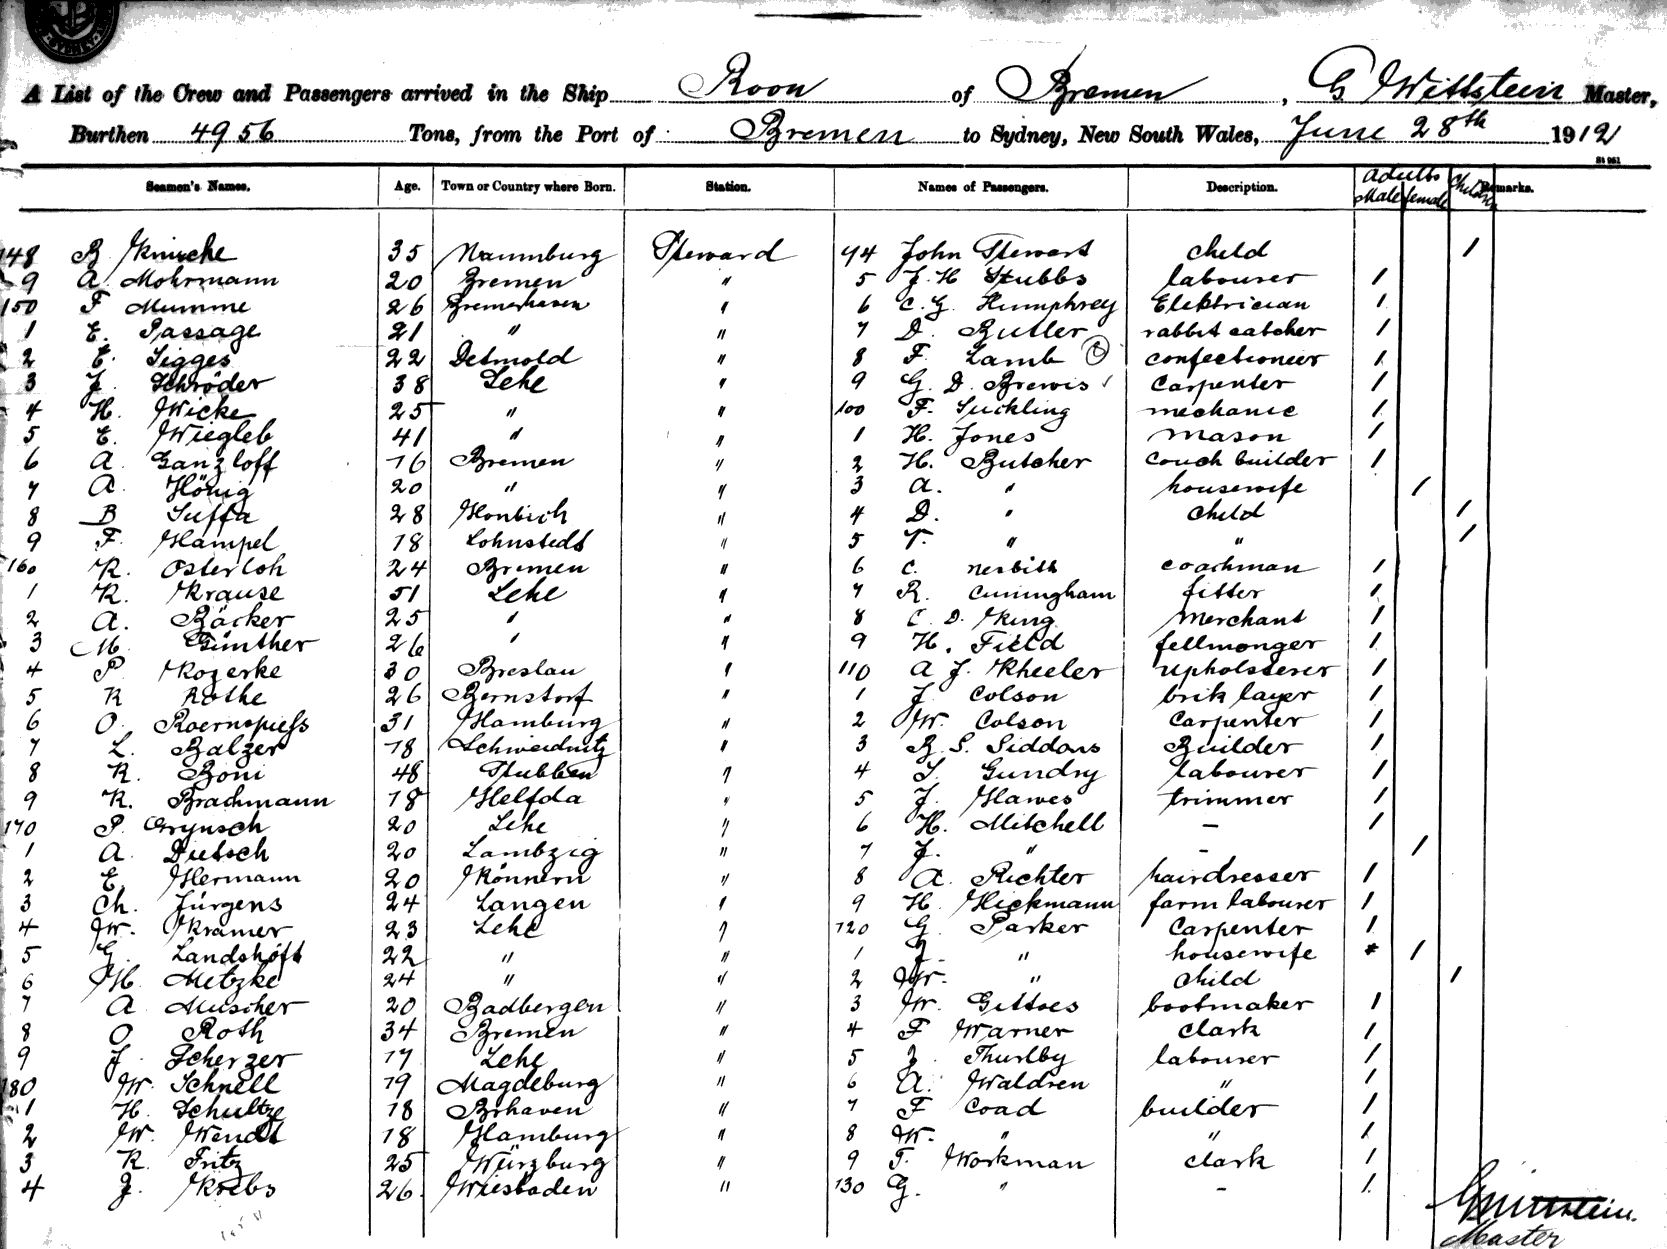 SYDNEY
A List of the Crew and Passengers arrived in the Ship Roon of Bremen, G Wittstein Master,
Burthen 4956 Tons, from the Port of Bremen to Sydney, New South Wales, June 28th 1912
St 961
Seamen's Names. Age. Town or Country where Born. Station. Names of Passengers. Description. Adults Male female Children Remarks.
148 35 Naumburg Steward 94 John Stewart child 1
9 A. Mohrmann 20 Bremen " 5 J. H Stubbs labourer 1
150 F Mumme 26 Bremerhaven " 6 C. G. Humphrey Elektrician 1
1 E. Passage 21 " " 7 D. Butler rabbit catcher 1
2 E. Sigges 22 Detmold " 8 F. Lamb confectioneer 1
3 J. Schröder 38 Lehe " 9 G. D. Brewis carpenter 1
4 H. Wicke 25 " " 100 F. Suckling mechanic 1
5 E. Wiegleb 41 " " 1 H. Jones mason 1
6 A. Ganzloff 16 Bremen " 2 H. Butcher couch builder 1
7 A. Hönig 20 " " 3 A. " housewife 1
8 B Suffa 28 " 4 D. " child 1
9 F. Hampel 18 Lohnstedt " 5 T. " " 1
160 R. Osterloh 24 Bremen " 6 C. Nesbitt coachman 1
1 K. Krause 51 Lehe " 7 R. Cuningham fitter 1
2 A. Bäcker 25 " " 8 C. D. King Merchant 1
3 M. Günther 26 " " 9 H. Field fellmonger 1
4 P. Kozerke 30 Breslau " 110 A J. Kheeler upholsterer 1
5 R Rothe 26 Bernstorf " 1 J. Colson brik layer 1
6 O. 31 Hamburg " 2 W. Colson Carpenter 1
7 L. Balzer 18 Schweidnitz " 3 B. S. Siddons Builder 1
8 K. Boni 48 Stubben " 4 S. Gundry labourer 1
9 K. Brachmann 18 Helfda " 5 J. Hawes trimmer 1
170 P. Grynsch 20 Lehe " 6 H. Mitchell — 1
1 A. Dietsch 20 Lambzig " 7 J. " — 1
2 E. Hermann 20 Könnern " 8 A. Richter hairdresser 1
3 Ch. Jürgens 24 Langen " 9 H. Hickmann farm labourer 1
4 W. Kramer 23 Lehe " 120 G. Parker Carpenter 1
5 G. Landshöft 22 " " 1 J. " housewife 1
6 H. Metzke 24 " " 2 W. " child 1
7 A. Muscher 20 Badbergen " 3 W. Gittoes bootmaker 1
8 O. Roth 34 Bremen " 4 F Warner clark 1
9 J. Scherzer 17 Lehe " 5 J. Thurlby labourer 1
180 W. Schnell 19 Magdeburg " 6 A. Waldren " 1
1 H. Schultze 18 Brhaven " 7 F Coad builder 1
2 W. Wendt 18 Hamburg " 8 W. " " 1
3 K. Fritz 25 Würzburg " 9 T. Workman clark 1
4 J. Krebs 26 Wiesbaden " 130 G. " — 1
GWittstein.
Master